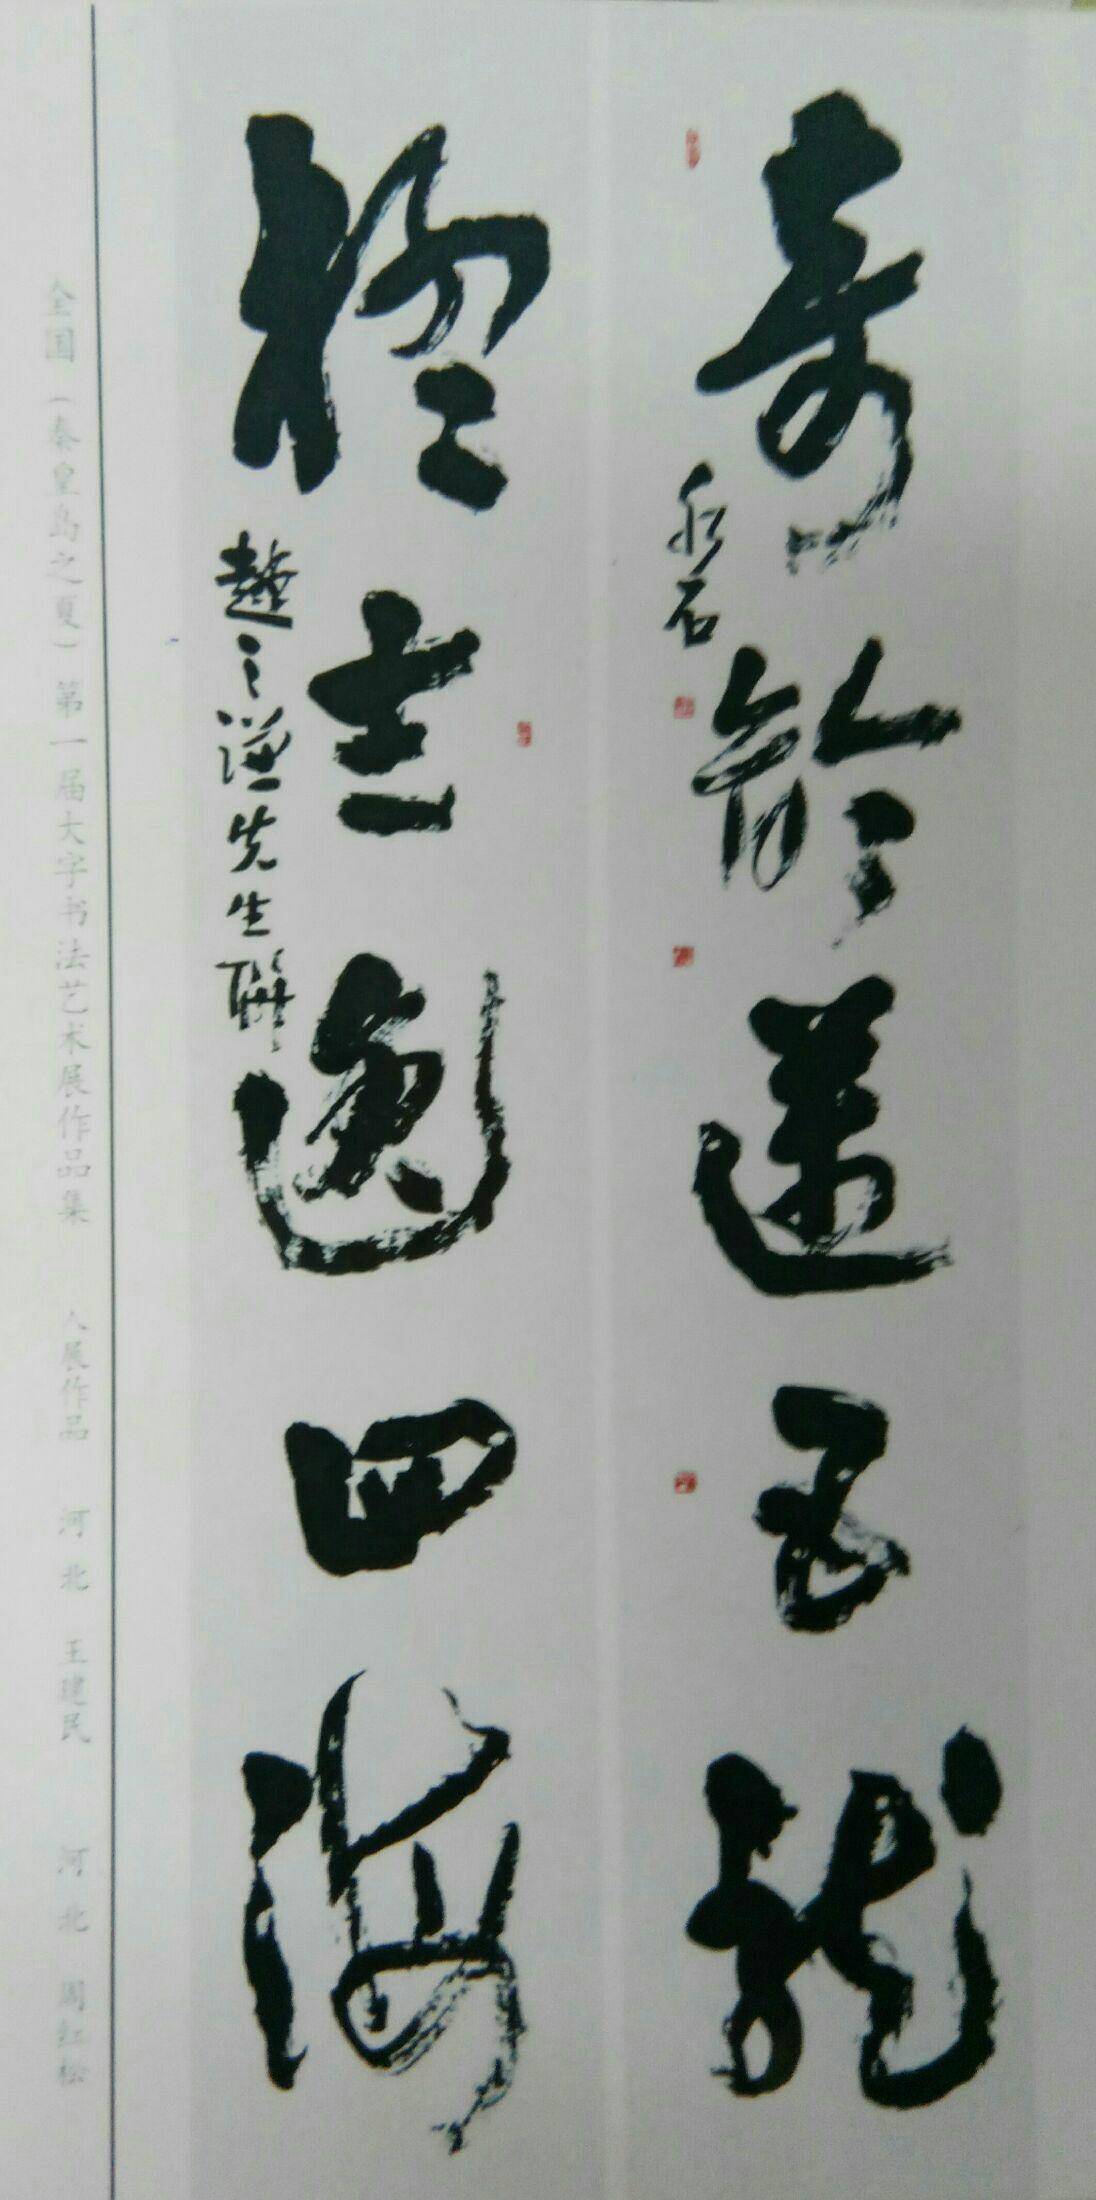 奇龄逮五龙
永石
於志逸四海
赵之谦先生联
全国（秦皇岛之夏）第一届大字书法艺术展作品集 入展作品 河北 王建民 河北 周红松